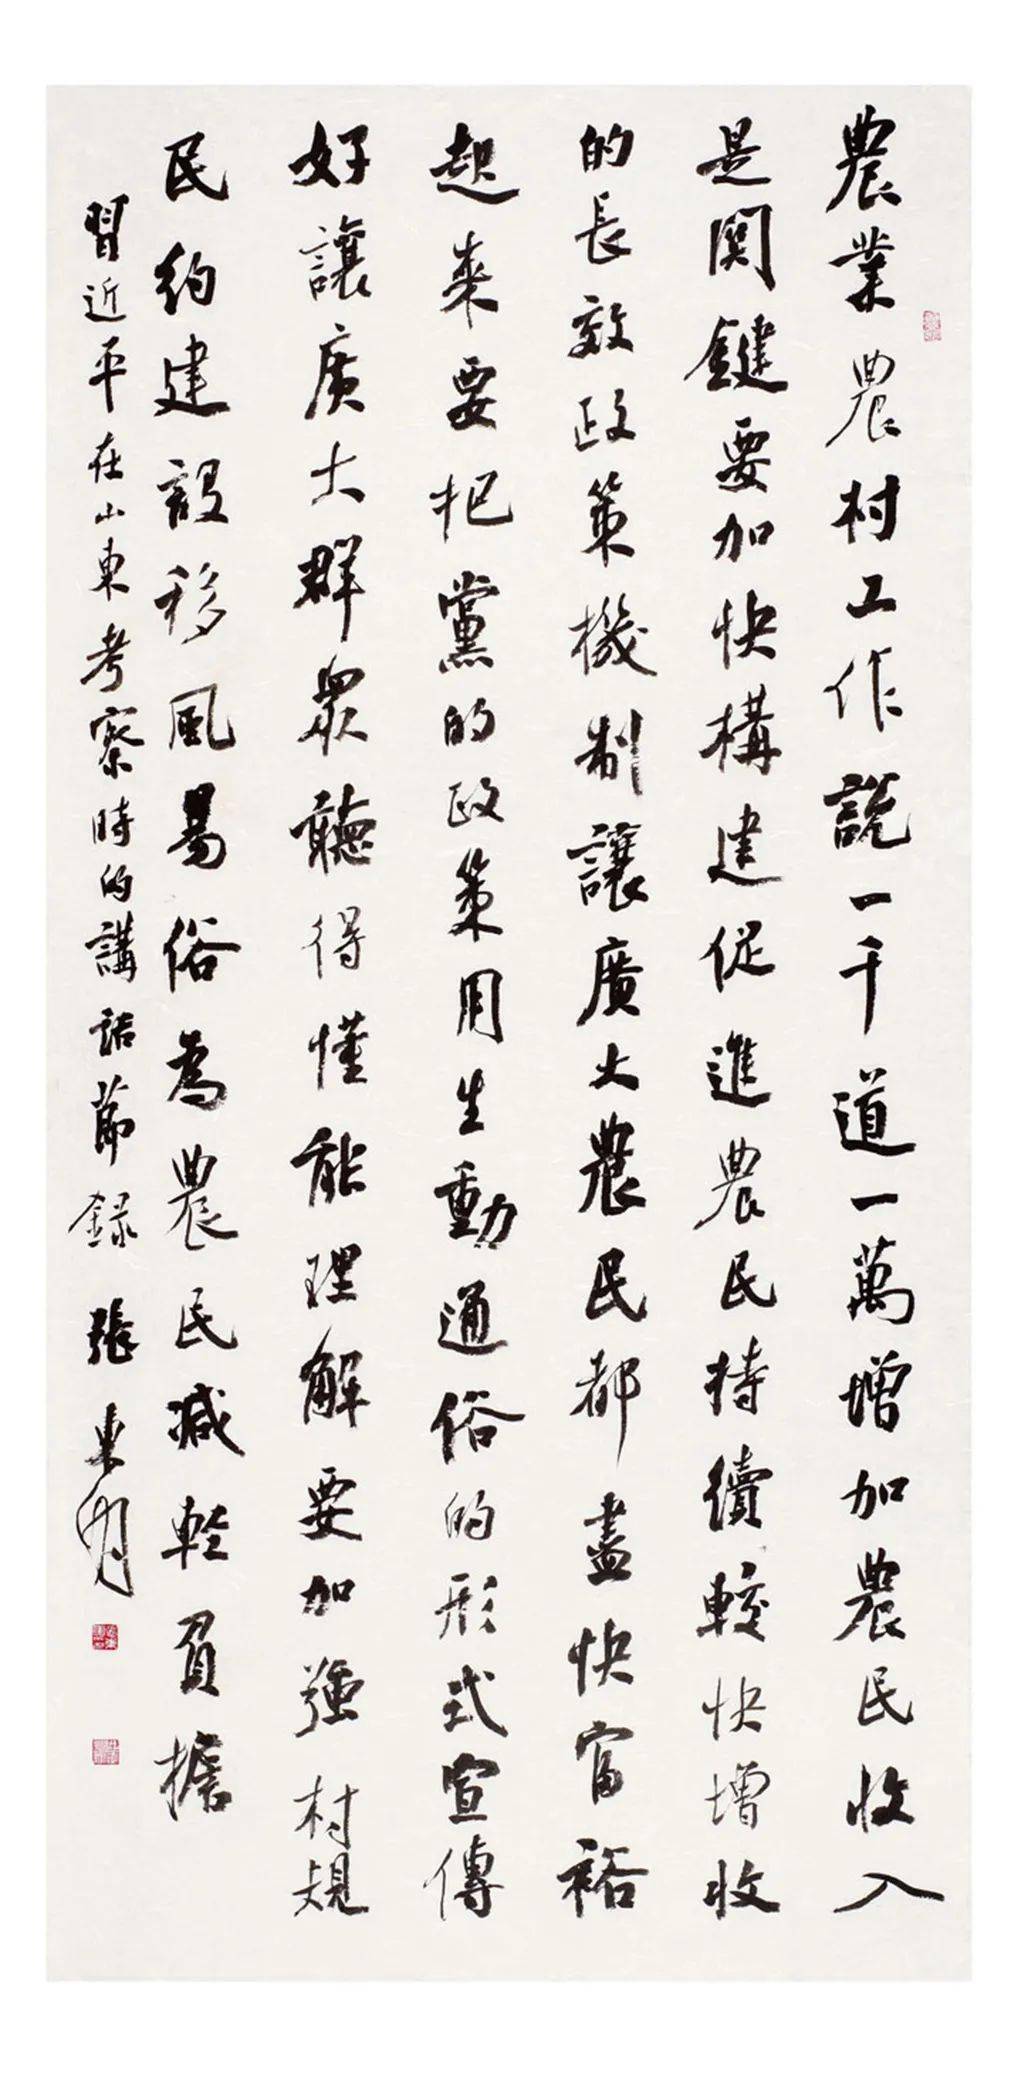 農業農村工作說一千道一萬增加農民收入
是関鍵要加快構建促進農民持續較快增收
的長效政策機制讓廣大農民都盡快富裕
起来要把黨的政策用生動通俗的形式宣傳
好讓廣大群眾聽得懂能理解要加強村規
民約建設移風易俗為農民減輕負擔
習近平在山東考察時的講話節録 張東明